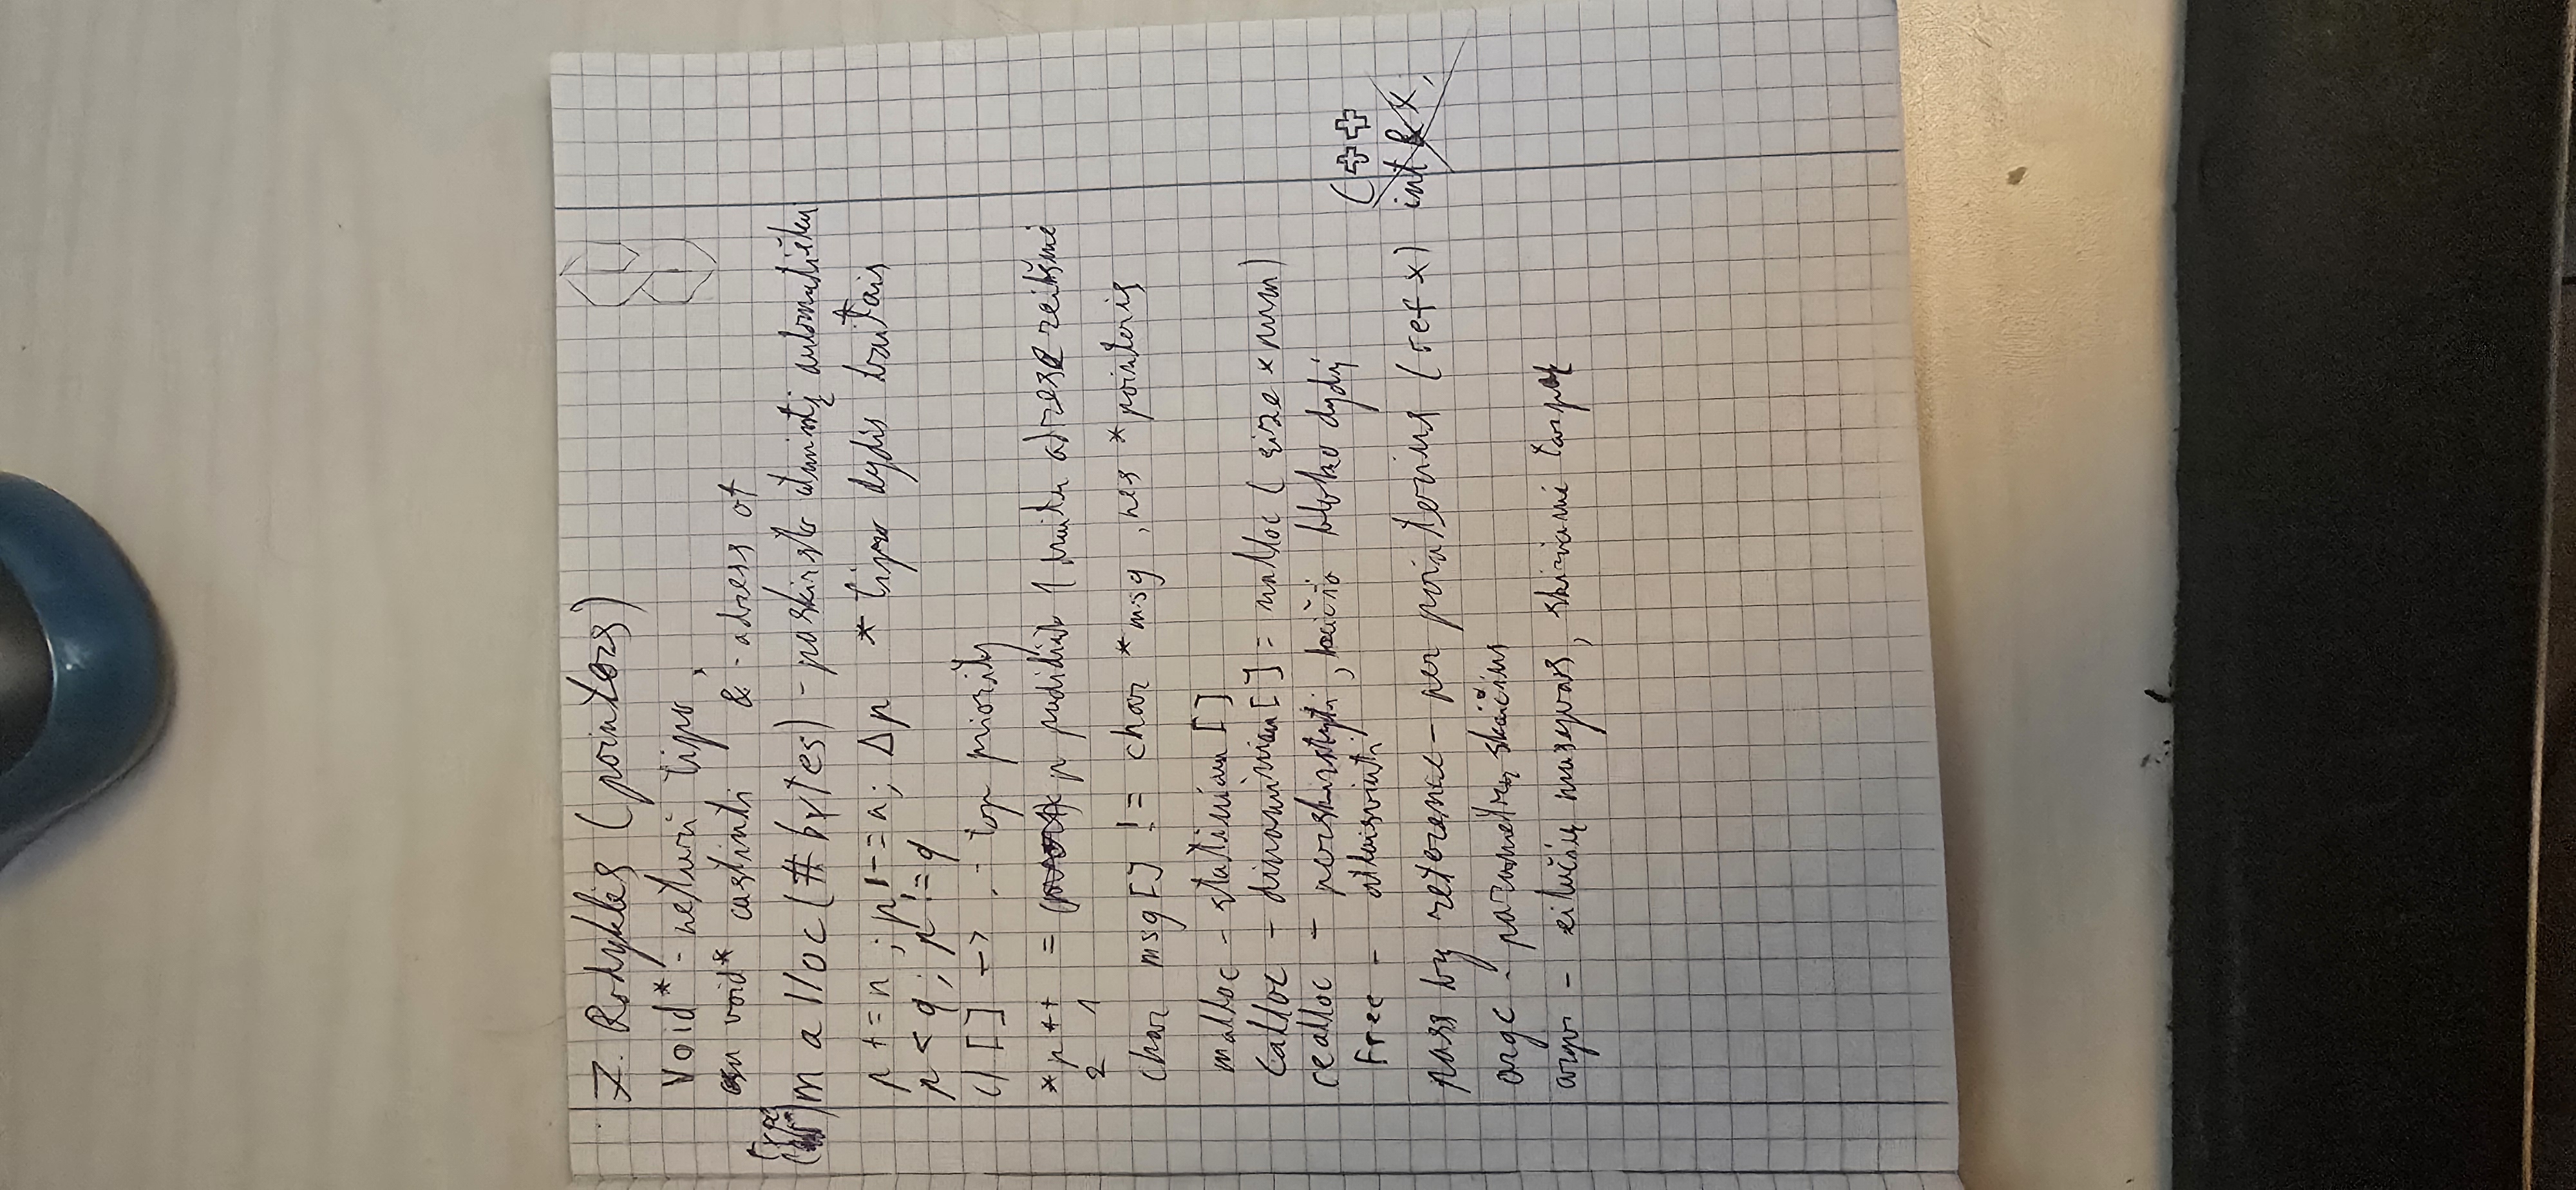 7. Rodyklės (pointers)
Void* - neturi tipo,
su void* castinti & - adress of
(type)
malloc(#bytes) - paskirsto atmintį automatiškai
p += n ; p -= n; Δp * tipo dydis baitais
p < q; p != q
() [] -> . - top priority
*p++ = p padidint 1 baitu adreso reikšmė
2 1
char msg[] != char *msg, nes *pointeris
malloc - statiniam []
calloc - dinaminiam [] = malloc (size × num)
realloc - perskirstyti, keičia bloko dydį
free - atlaisvinti
C++
pass by reference - per pointerius (ref x) int & x;
argc - parametrų skaičius
argv - eilučių masyvas, skiriami tarpai